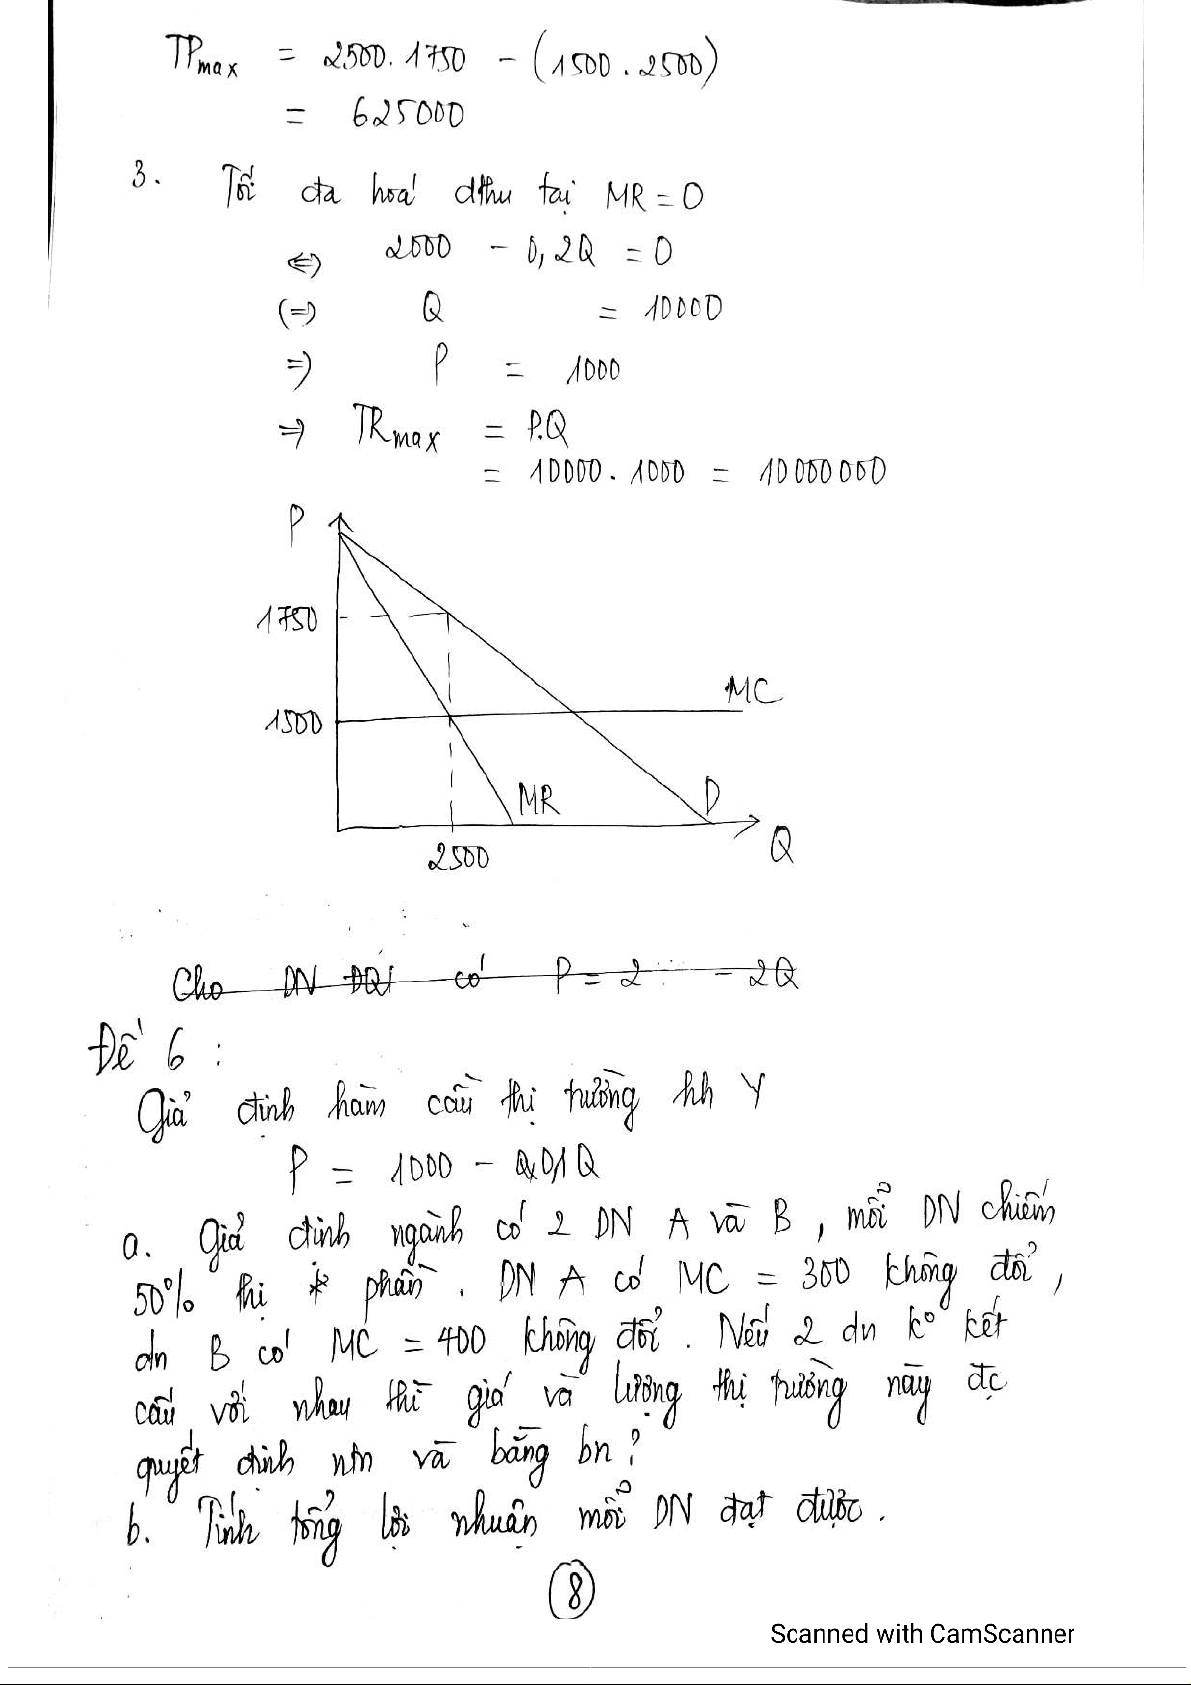 TPmax = 2500.1750 - (1500.2500)
= 625000
3. Tối đa hoá dthu tại MR = 0
⇔ 2000 - 0,2Q = 0
(=) Q = 10000
=) P = 1000
=> TRmax = P.Q
= 10000.1000 = 10000000
P
1750
MC
1500
MR
D
Q
2500
Cho DN ĐQ có P = 2 - 2Q
Đề 6 :
Giả định hàm cầu thị trường hh Y
P = 1000 - 0,01Q
a. Giả định ngành có 2 DN A và B, mỗi DN chiếm
50% thị phần. DN A có MC = 300 không đổi,
dn B có MC = 400 không đổi. Nếu 2 dn k° kết
cấu với nhau thì giá và lượng thị trường này đc
quyết định ntn và bằng bn?
b. Tính tổng lợi nhuận mỗi DN đạt được.
8
Scanned with CamScanner